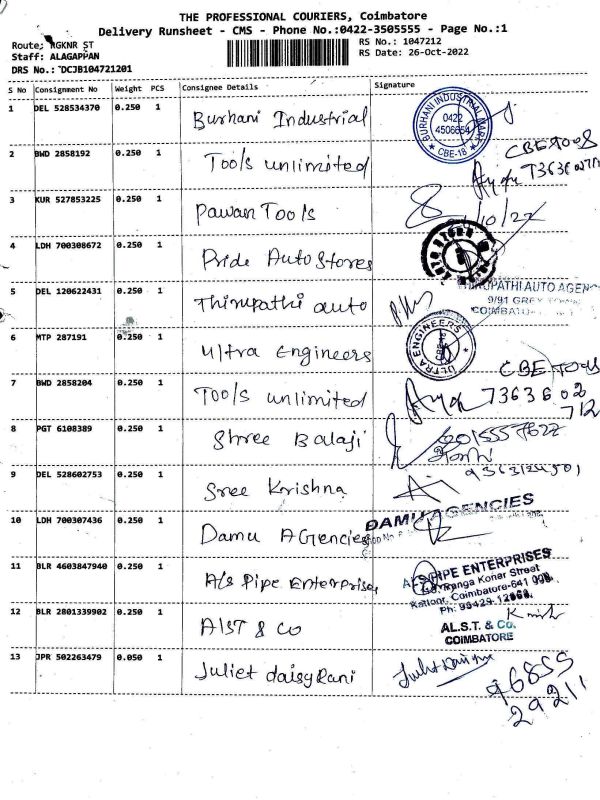 THE PROFESSIONAL COURIERS, Coimbatore
Delivery Runsheet - CMS - Phone No.:0422-3505555 - Page No.:1
Route: RGKNR ST
RS No.: 1047212
Staff: ALAGAPPAN
RS Date: 26-Oct-2022
DRS No.: DCJB104721201
S No Consignment No Weight PCS Consignee Details Signature
1 DEL 528534370 0.250 1 Burhani Industrial BURHANI INDUSTRIAL MART 0422 CBE-18
2 BWD 2858192 0.250 1 Tools unlimited CBE Tools
3 KUR 527853225 0.250 1 Pawan Tools /10/22
4 LDH 700308672 0.250 1 Pride Auto Stores
5 DEL 120622431 0.250 1 Thirupathi auto THIRUPATHI AUTO AGENC
9/91 GREY TOWN
COIMBATO
6 MTP 287191 0.250 1 Ultra Engineers ULTRA ENGINEERS
7 BWD 2858204 0.250 1 Tools unlimited CBE Tools
7363602
712
8 PGT 6108389 0.250 1 Shree Balaji
9 DEL 528602753 0.250 1 Sree Krishna
10 LDH 700307436 0.250 1 Damu AGencies DAMU AGENCIES
11 BLR 4603847940 0.250 1 A/s Pipe Enterprises PIPE ENTERPRISES
Ranga Konar Street
Kattoor, Coimbatore-641 009.
Ph: 99429 12868
12 BLR 2801339902 0.250 1 AlST & CO AL.S.T. & Co.
COIMBATORE
13 JPR 502263479 0.050 1 Juliet daisyRani
96855
29211